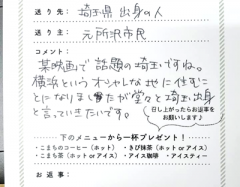 送り先: 埼玉県出身の人
送り主: 元所沢市民
コメント:
某映画で話題の埼玉ですね。
横浜というオシャレな地に住むこ
とになりましたが堂々と埼玉出身
と言っていきたいです。
召し上がったらお返事を
お願いします♪
下のメニューから一杯プレゼント!
・こまちのコーヒー(ホット) ・きび抹茶(ホット or アイス)
・こまち茶(ホット or アイス) ・アイス珈琲 ・アイスティー
お返事: